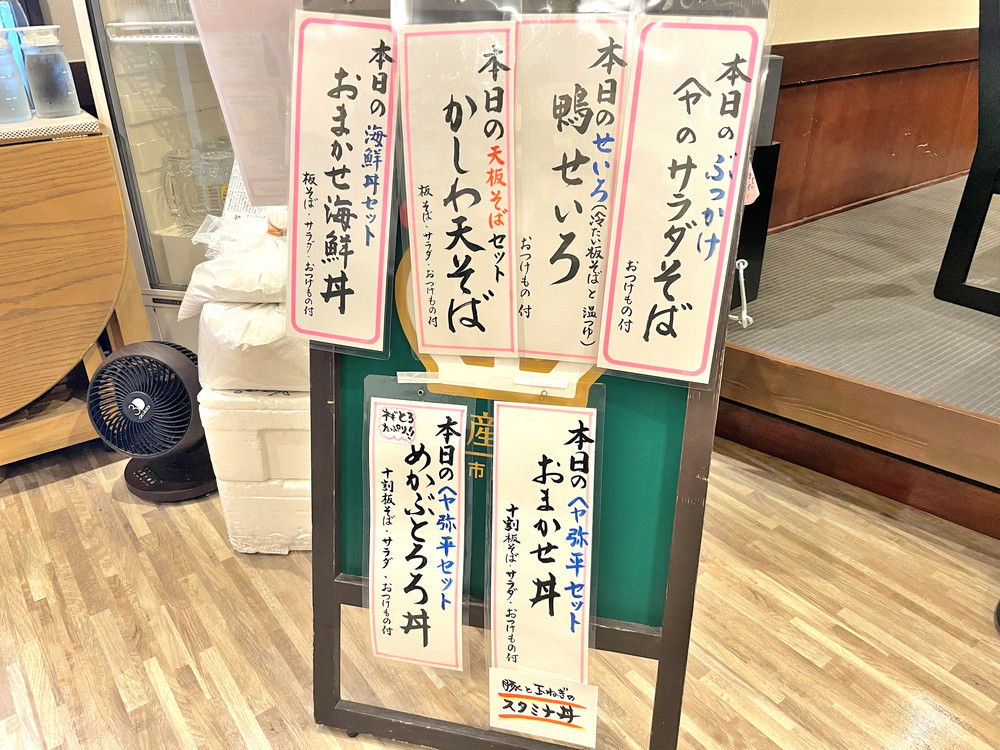 本日のぶっかけ
ヘヤのサラダそば
おつけもの付
本日のせいろ(冷たい板そばと温つゆ)
鴨せいろ
おつけもの付
本日の天板そばセット
かしわ天そば
板そば・サラダ・おつけもの付
本日の海鮮丼セット
おまかせ海鮮丼
板そば・サラダ・おつけもの付
本日のヘヤ弥平セット
おまかせ丼
十割板そば・サラダ・おつけもの付
豚と玉ねぎの
スタミナ丼
産
市
本日のヘヤ弥平セット
めかぶとろろ丼
十割板そば・サラダ・おつけもの付
ネギとろ
たっぷり!!